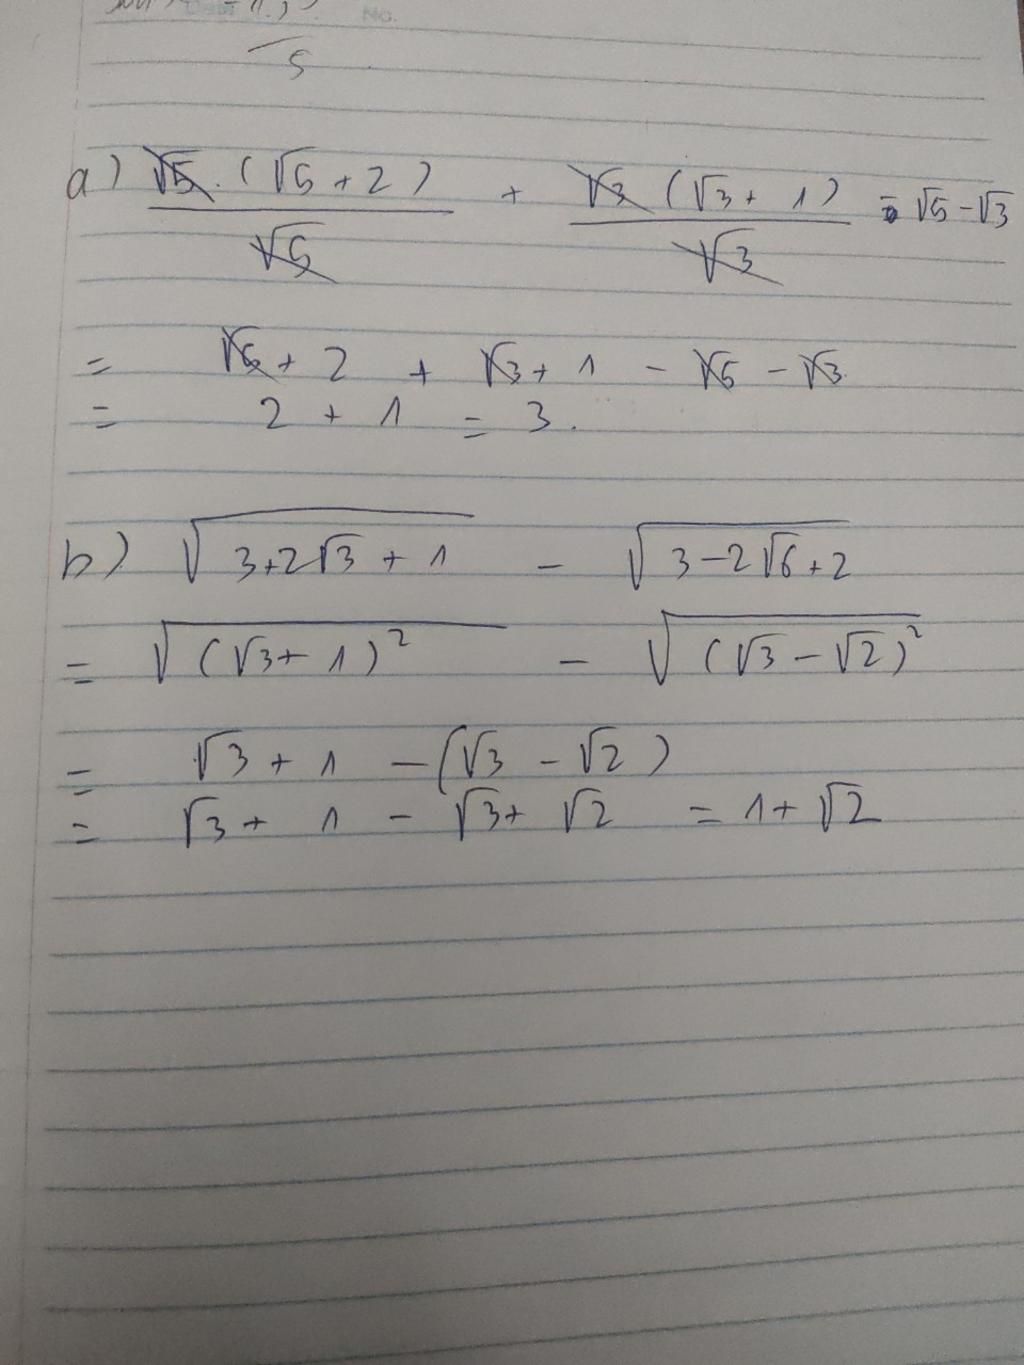 No.
5
a) √5.(√5+2)/√5 + √3(√3+1)/√3 - √5-√3
= √5+2 + √3+1 - √5 - √3
= 2 + 1 = 3.
b) √(3+2√3+1) - √(3-2√6+2)
= √((√3+1)²) - √((√3-√2)²)
= √3+1 -(√3-√2)
= √3+1 - √3+√2 = 1+√2